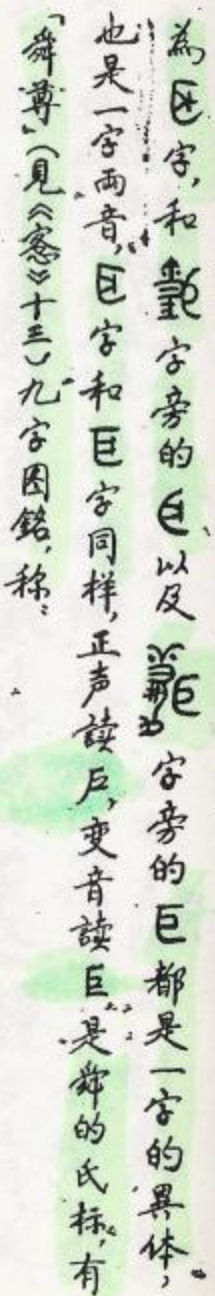 為巨字，和字旁的以及字旁的巨都是一字的異体，
也是一字兩音，巨字和巨字同样，正声讀后，变音讀巨是舜的氏标，有
「舜尊」（見《愙》十三）九字圈銘，称：